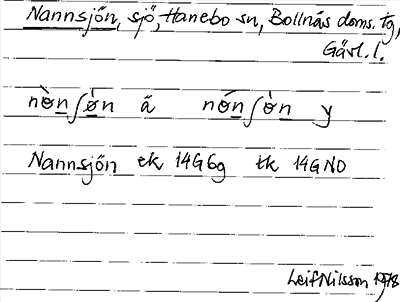 Nannsjön, sjö, Hanebo sn, Bollnäs doms. tg,
Gävl. l.
nò̀nʃø̀n ä nónʃòn y
Nannsjön ek 14G6g tk 14GNO
Leif Nilsson 1978